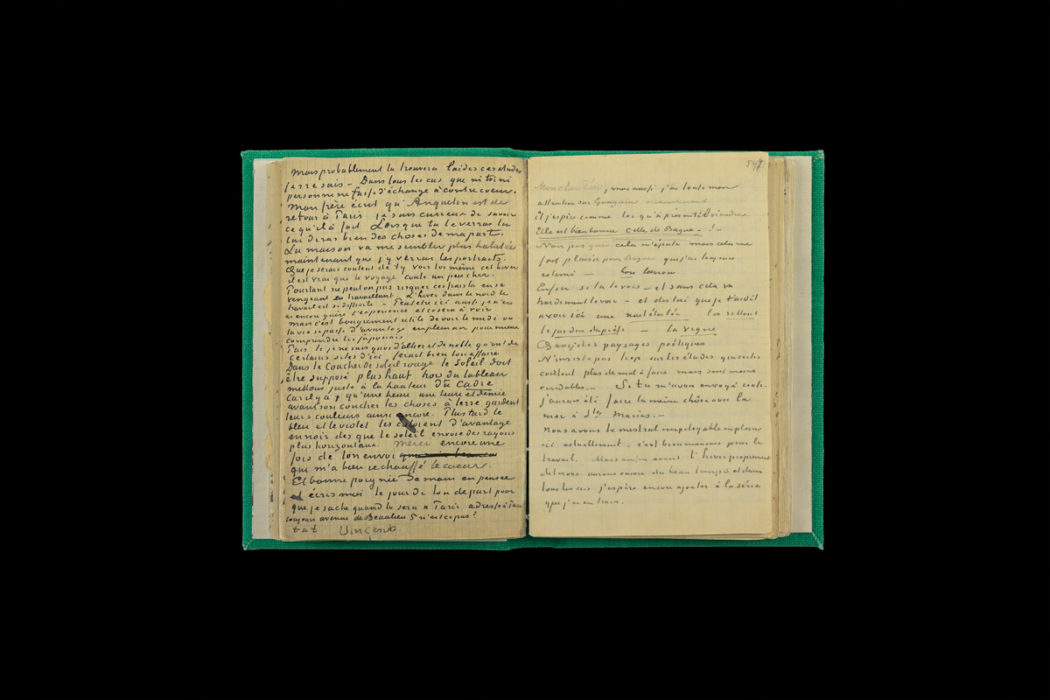 Mais probablement tu trouveras laides ces etudes
je ne sais – Dans tous les cas que ni toi ni
personne ne fasse d'échange à contrecoeur.
Mon frère écrit qu'Anquetin est de
retour à Paris je suis curieux de savoir
ce qu'il a fait Lorsque tu le verras tu
lui diras bien des choses de ma part.
La maison va me sembler plus habitée
maintenant que j'y verrai les portraits.
Que je serais content de t'y voir toi même cet hiver
il est vrai que le voyage coute un peu cher.
Pourtant ne peut on pas risquer ces frais la en se
vengeant en travaillant L'hiver dans le nord le
travail est si difficile – Peutetre ici aussi je n'en
ai encore guère l'experience et cela reste à voir
mais c'est bougrement utile de voir le midi où
la vie se passe d'avantage en plein air pour mieux
comprendre les japonais
Puis le je ne sais quoi d'altier et de noble qu'ont de
certains sites d'ici ferait bien ton affaire.
Dans le Coucher de soleil rouge le soleil doit
être supposé plus haut hors du tableau
mettons juste à la hauteur du cadre
Car il y a qu'une heure une heure et demie
avant son coucher les choses à terre gardent
leurs couleurs ainsi encore. Plus tard le
bleu et le violet les colorent d'avantage
en noir des que le soleil envoie des rayons
plus horizontaux. Merci encore une
fois de ton envoi
qui m'a bien rechauffé le coeur.
Et bonne poignée de main en pensée
et écris moi le jour de ton départ pour
que je sache quand tu seras à Paris adresse à Paris
toujours avenue de Beaulieu 5 n'est ce pas?
t. à t. Vincent
547
Mon cher Theo, moi aussi j'ai toute mon
attention sur Gauguin
et j'espère comme toi qu'à présent il viendra
Elle est bien bonne celle de Bague. – ! –
Non pas que cela m'épate mais cela me
fait plaisir pour Bague que j'ai toujours
estimé –
Enfin si tu le vois – et sans cela va
hardiment le voir – et dis lui que je t'ai dit
avoir ici une nuit étoilée les sillons
le jardin du poète – la vigne
Bref des paysages poétiques
N'insiste pas trop sur les études qui certes
coûtent plus de mal à faire mais sont moins
vendables. – Si tu m'avais envoyé cent
j'aurais été faire la même chose avec la
mer à Stes Maries. –
Nous avons le mistral impitoyable en plein
ici actuellement – c'est bien mauvais pour le
travail. Mais enfin avant l'hiver proprement
dit nous aurons encore du beau temps et dans
tous les cas j'espère encore ajouter à la série
que j'ai en train.